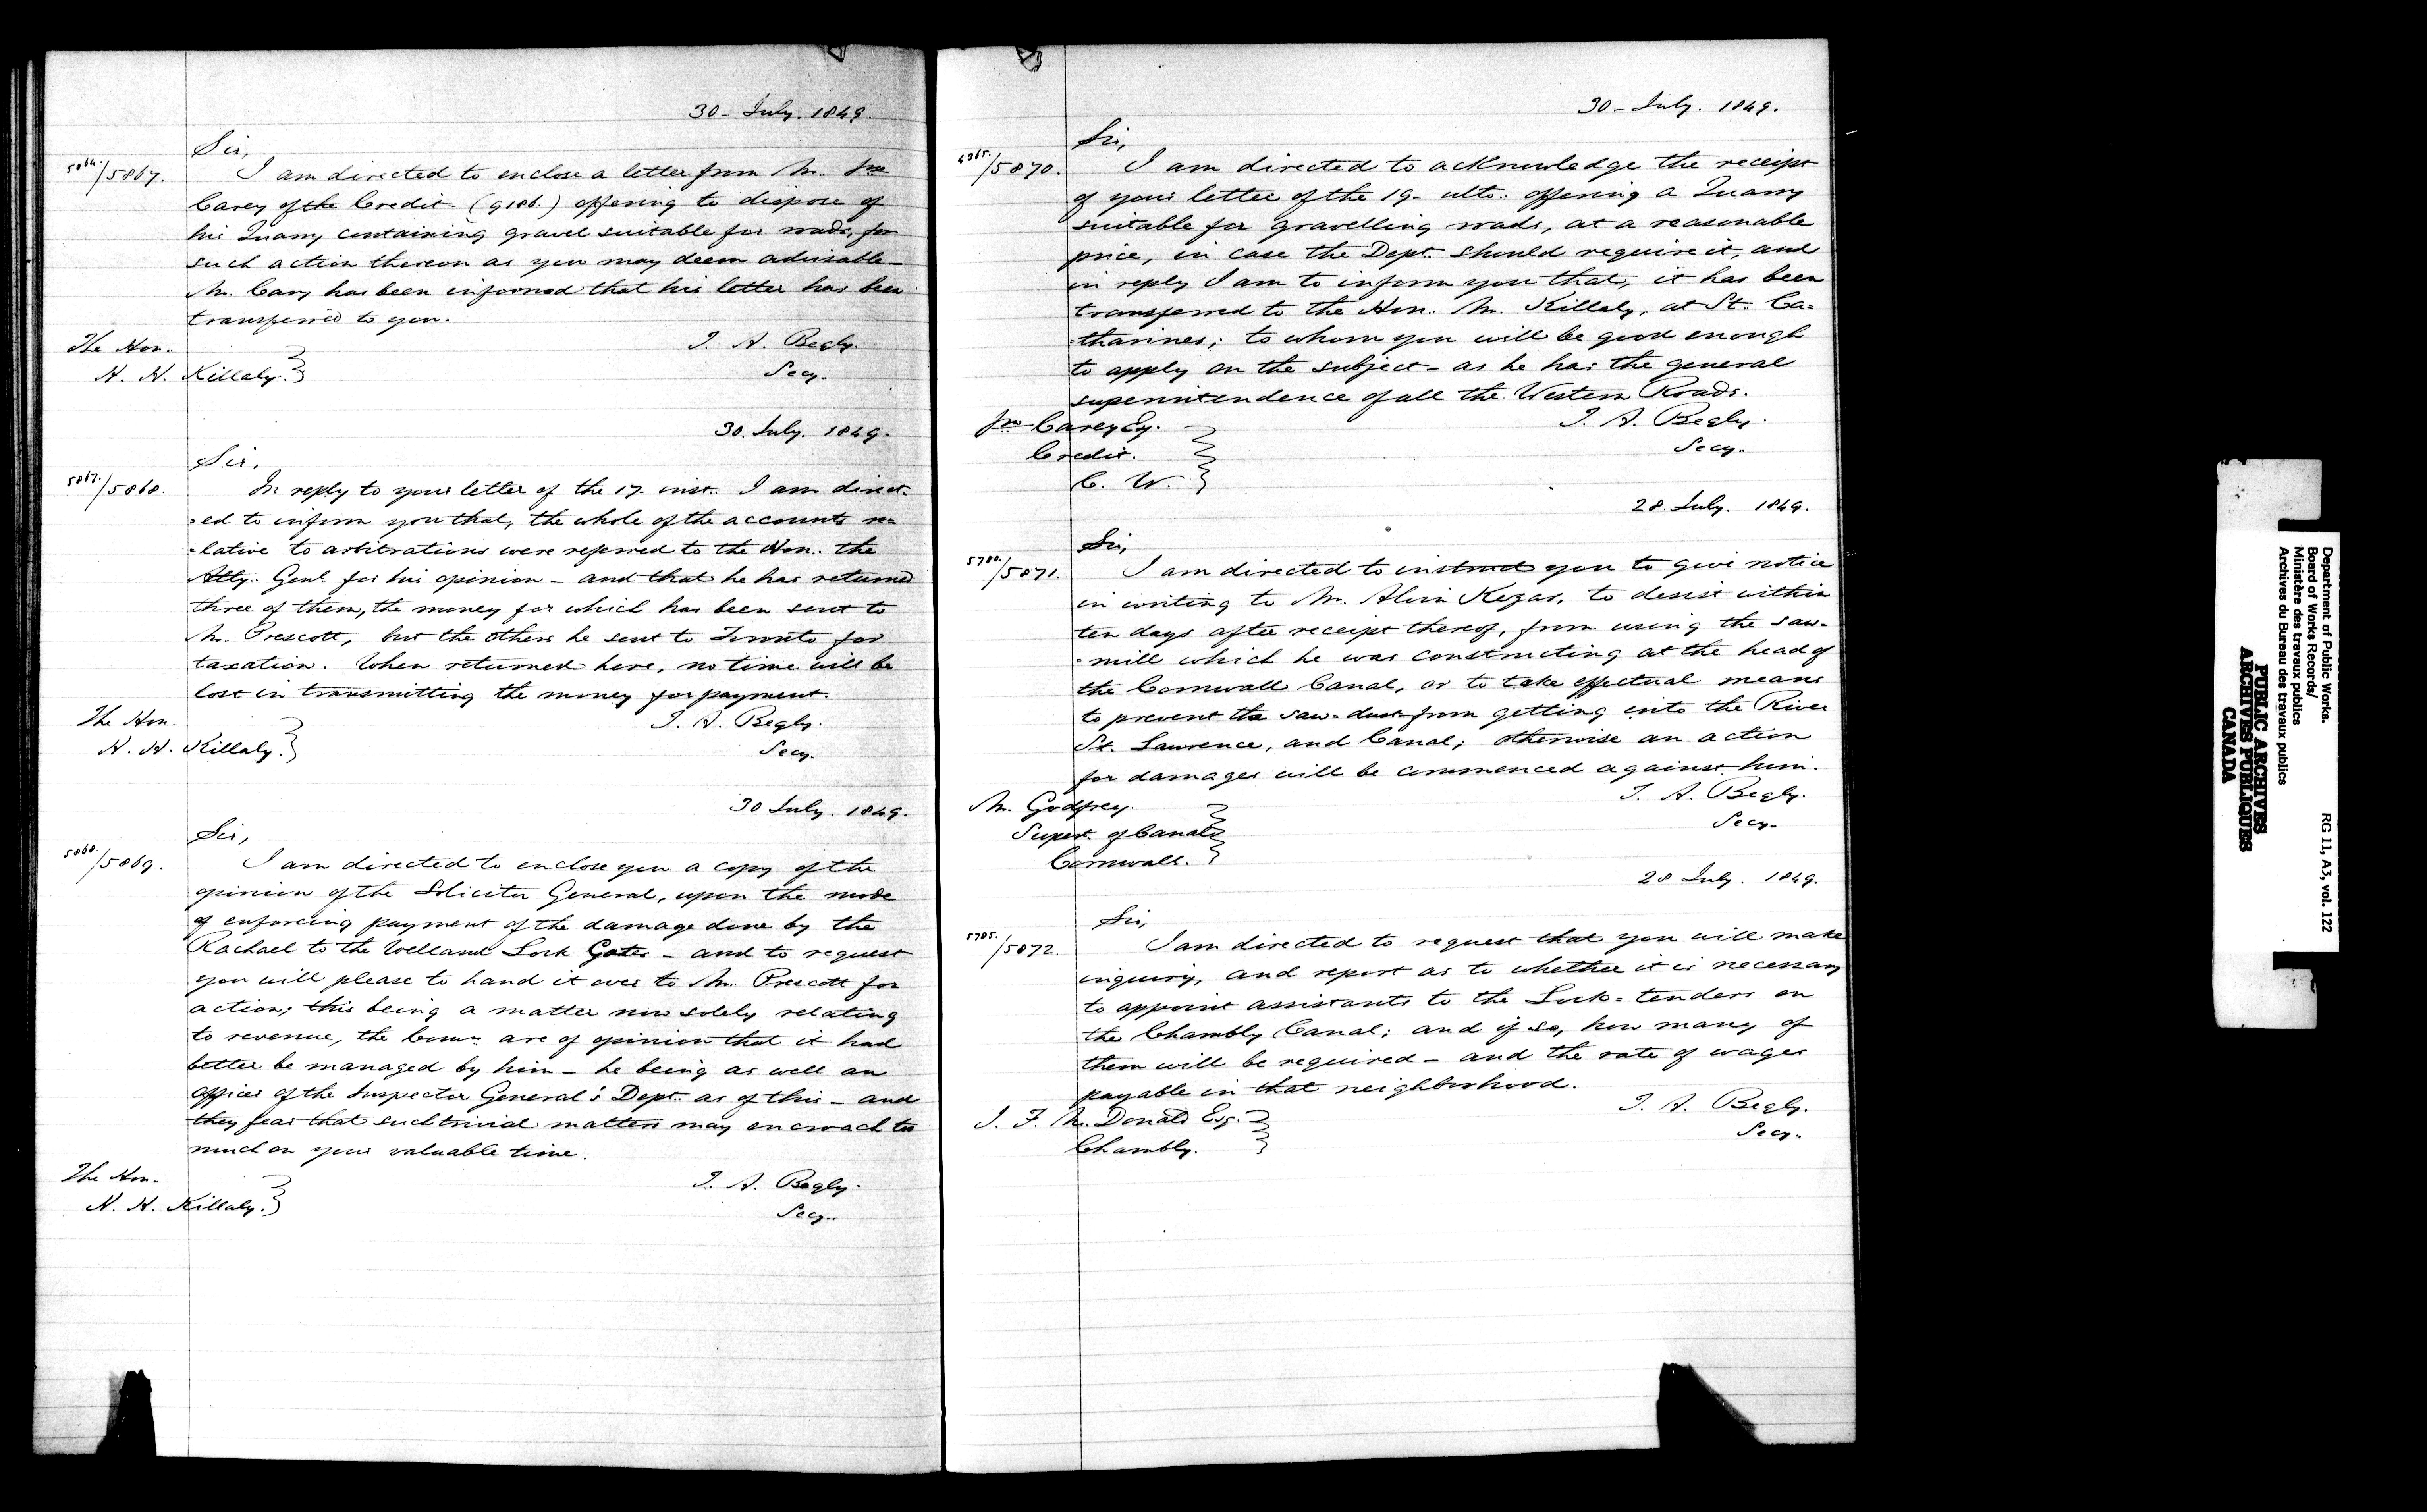 30 - July. 1849.
Sir,
5864./5867. I am directed to enclose a letter from Mr. Jno
Carey of the Credit - (9186.) offering to dispose of
his Quarry containing gravel suitable for roads, for
such action thereon as you may deem advisable -
Mr. Cary has been informed that his letter has been
transferred to you.
The Hon. T. A. Begly.
H. H. Killaly. Secy.
30. July. 1849.
Sir,
5867./5868. In reply to your letter of the 17. inst. I am direct-
-ed to inform you that, the whole of the accounts re-
-lative to arbitrations were referred to the Hon. the
Atty. Genl. for his opinion - and that he has returned
three of them, the money for which has been sent to
Mr. Prescott, but the others he sent to Toronto for
taxation. When returned here, no time will be
lost in transmitting the money for payment.
The Hon. T. A. Begly.
H. H. Killaly. Secy.
30 July. 1849.
Sir,
5868./5869. I am directed to enclose you a copy of the
opinion of the Solicitor General, upon the mode
of enforcing payment of the damage done by the
Rachael to the Welland Lock Gates - and to request
you will please to hand it over to Mr. Prescott for
action; this being a matter now solely relating
to revenue, the Commrs are of opinion that it had
better be managed by him - he being as well an
officer of the Inspector General's Dept. as of this - and
they fear that such trivial matters may encroach too
much on your valuable time.
The Hon. T. A. Begly.
H. H. Killaly. Secy.
30 - July. 1849.
Sir,
4965./5870. I am directed to acknowledge the receipt
of your letter of the 19. ulto. offering a Quarry
suitable for gravelling roads, at a reasonable
price, in case the Dept. should require it, and
in reply I am to inform you that, it has been
transferred to the Hon. Mr. Killaly, at St. Ca-
-tharines; to whom you will be good enough
to apply on the subject - as he has the general
superintendence of all the Western Roads.
Jno Carey Esq. T. A. Begly.
Credit. Secy.
C. W.
28. July. 1849.
Sir,
5780./5871. I am directed to instruct you to give notice
in writing to Mr. Alvin Kezar, to desist within
ten days after receipt thereof, from using the saw-
-mill which he was constructing at the head of
the Cornwall Canal, or to take effectual means
to prevent the saw-dust from getting into the River
St. Lawrence, and Canal; otherwise an action
for damages will be commenced against him.
Mr. Godfrey. T. A. Begly.
Supert. of Canal Secy.
Cornwall.
28 July. 1849.
Sir,
5785./5872. I am directed to request that you will make
inquiry, and report as to whether it is necessary
to appoint assistants to the Lock-tenders on
the Chambly Canal; and if so, how many of
them will be required - and the rate of wages
payable in that neighborhood.
J. F. Mc. Donald Esq. T. A. Begly.
Chambly. Secy.
Department of Public Works.
Board of Works Records/
Ministère des travaux publics
Archives du Bureau des travaux publics
RG 11, A3, vol. 122
PUBLIC ARCHIVES
ARCHIVES PUBLIQUES
CANADA